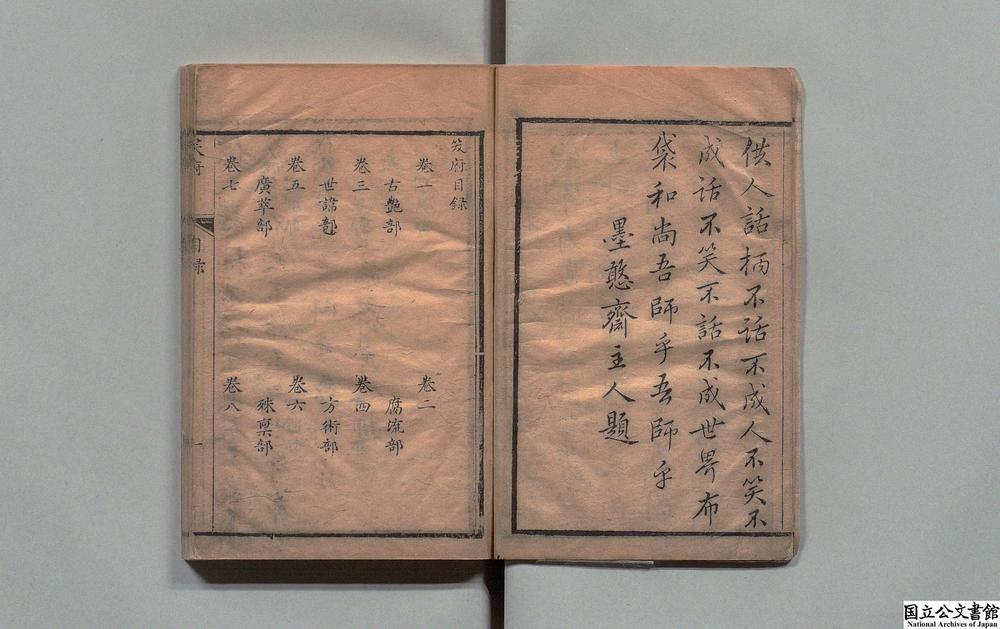 供人話柄不話不成人不笑不
成話不笑不話不成世界布
袋和尚吾師乎吾師乎
墨憨齋主人題
笑府目録
卷一
卷二
古艶部
腐流部
卷三
卷四
世諱部
方術部
卷五
卷六
廣萃部
殊稟部
卷七
卷八
笑府
目録
一
国立公文書館
National Archives of Japan